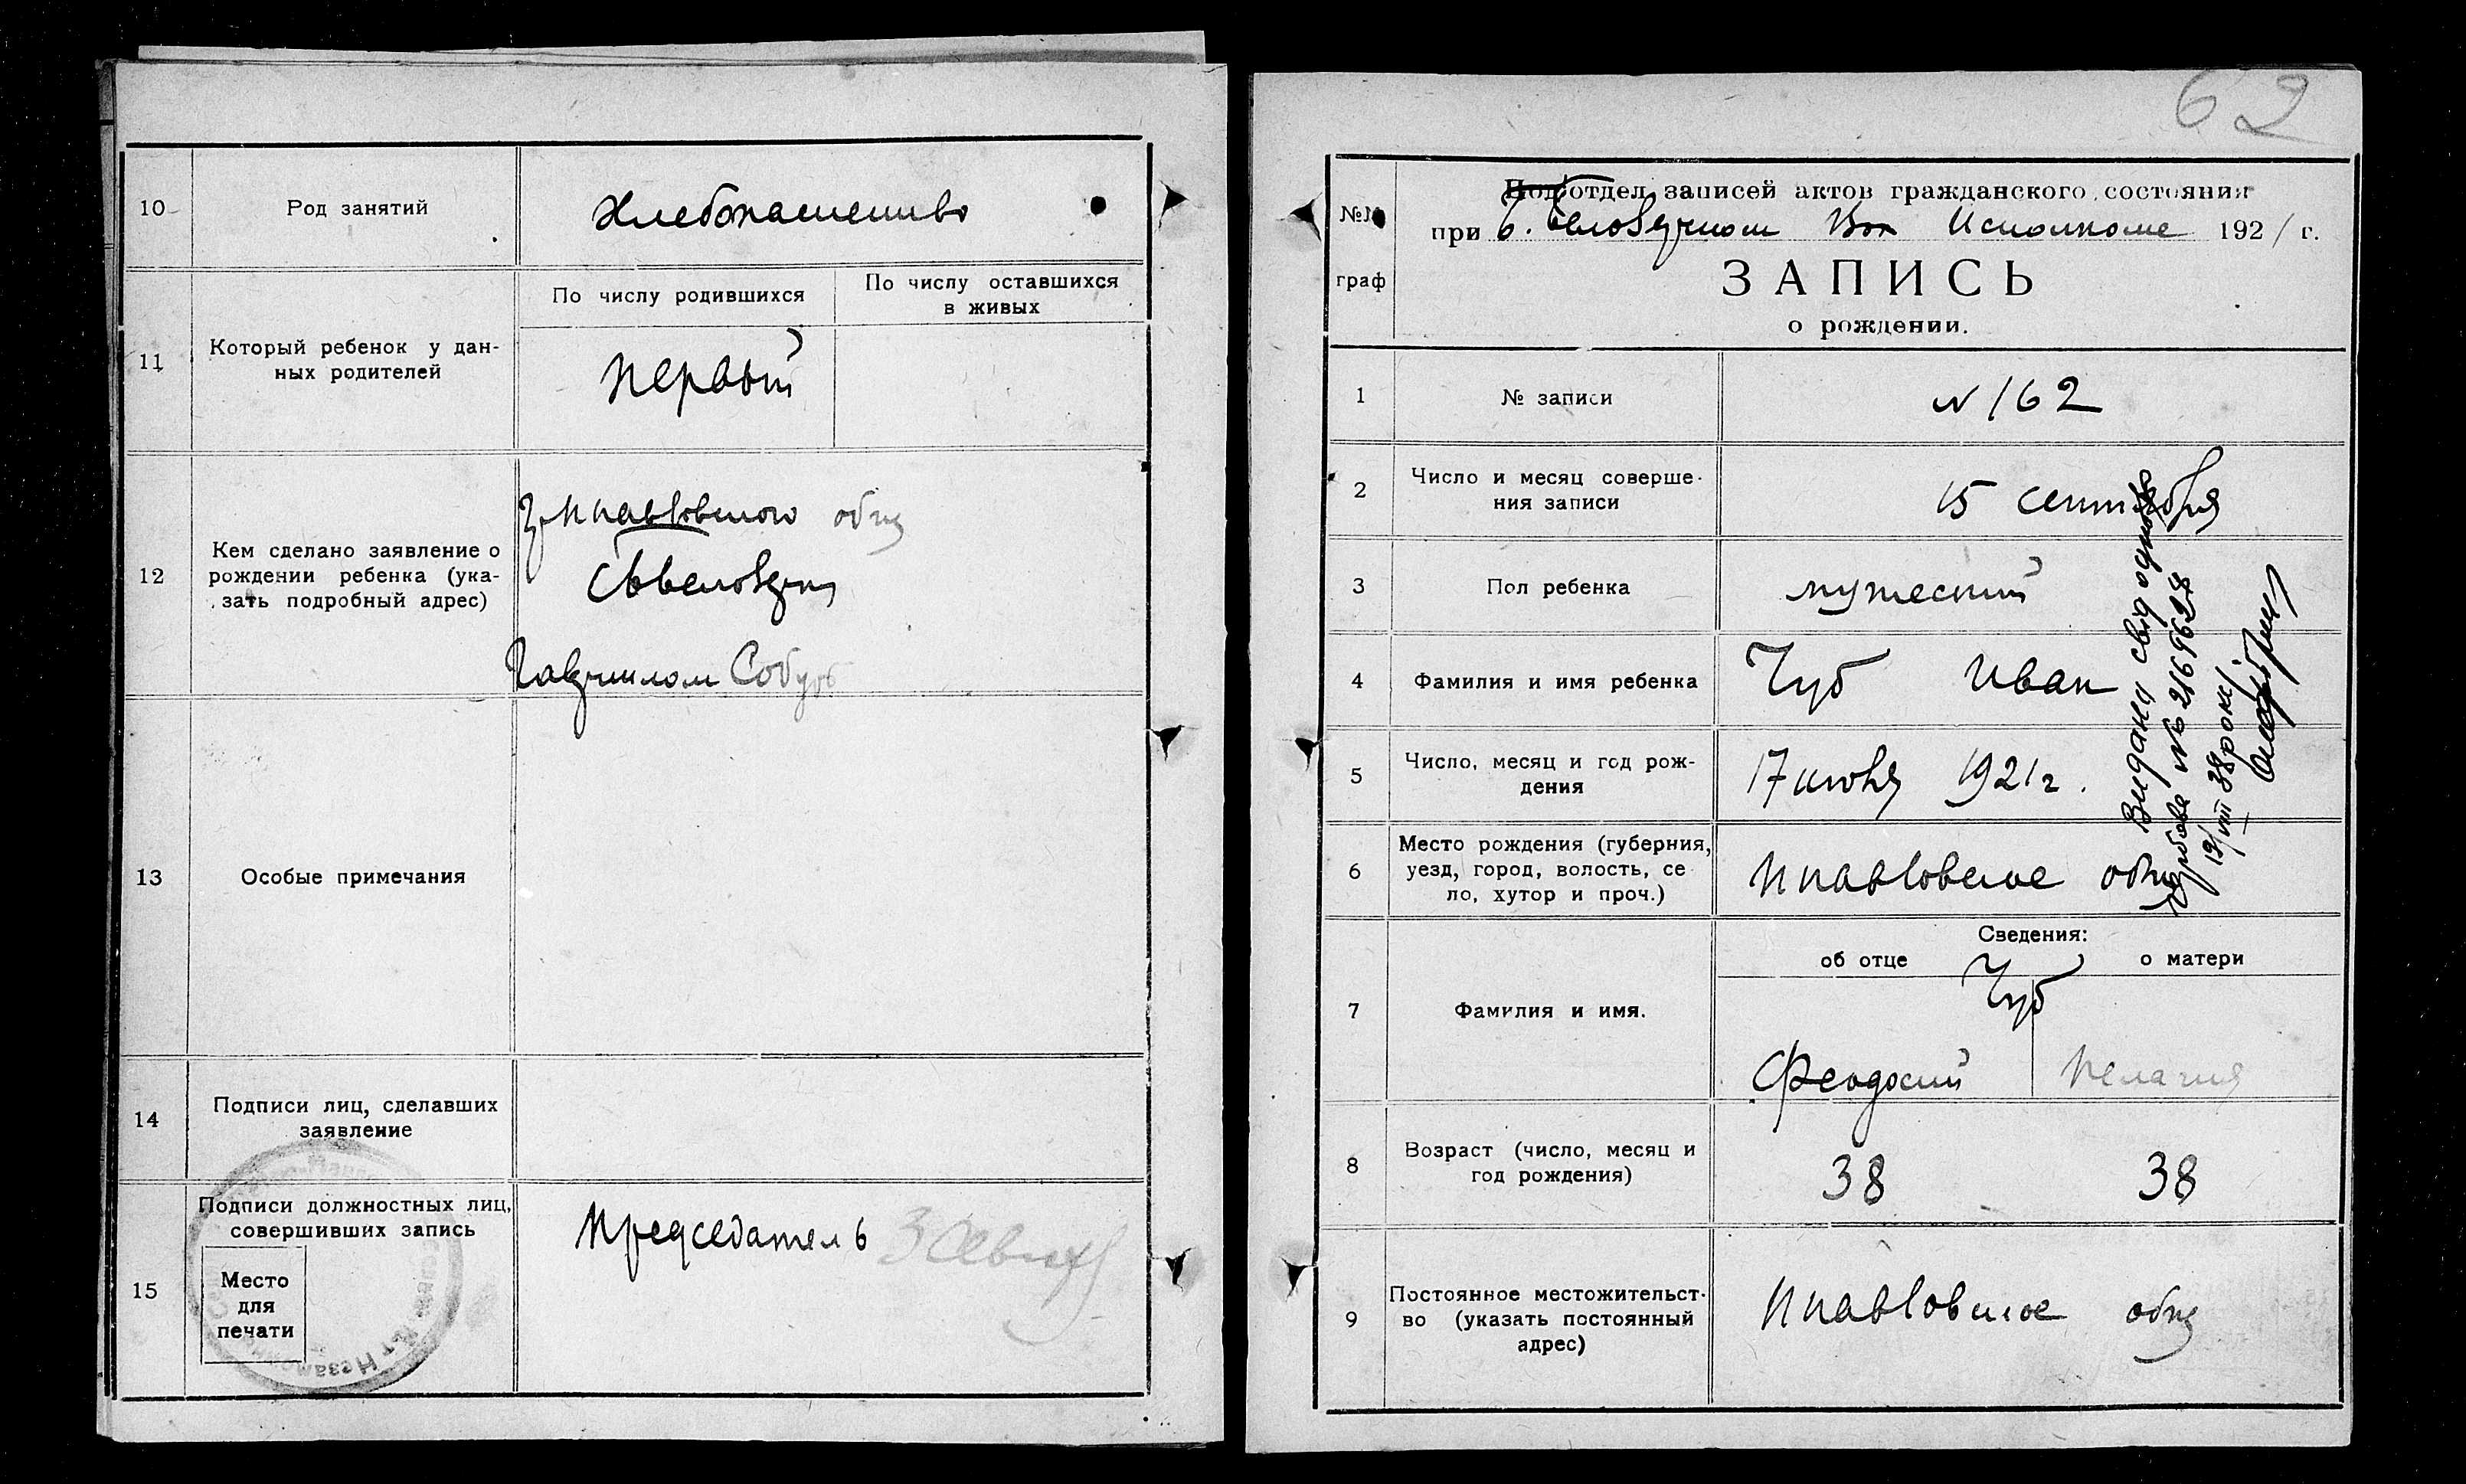 10
Род занятий
Хлебопашество
11
Который ребенок у дан-
ных родителей
По числу родившихся
По числу оставшихся
в живых
Первый
12
Кем сделано заявление о
рождении ребенка (ука-
зать подробный адрес)
общ
13
Особые примечания
14
Подписи лиц, сделавших
заявление
15
Подписи должностных лиц,
совершивших запись
Место
для
печати
Председатель
62
№№
граф
Подотдел записей актов гражданского состояния
при Вол Исполкоме 1921 г.
ЗАПИСЬ
о рождении.
1
№ записи
N 162
2
Число и месяц соверше-
ния записи
15 сентября
3
Пол ребенка
мужеский
4
Фамилия и имя ребенка
Чуб Иван
5
Число, месяц и год рож-
дения
17 июня 1921 г.
6
Место рождения (губерния,
уезд, город, волость, се
ло, хутор и проч.)
Ипавловское общ
Сведения:
об отце
о матери
7
Фамилия и имя.
Чуб
Феодосий
Пелагия
8
Возраст (число, месяц и
год рождения)
38
38
9
Постоянное местожительст-
во (указать постоянный
адрес)
Ипавловское общ
Видани свід
13/VIII 38 року